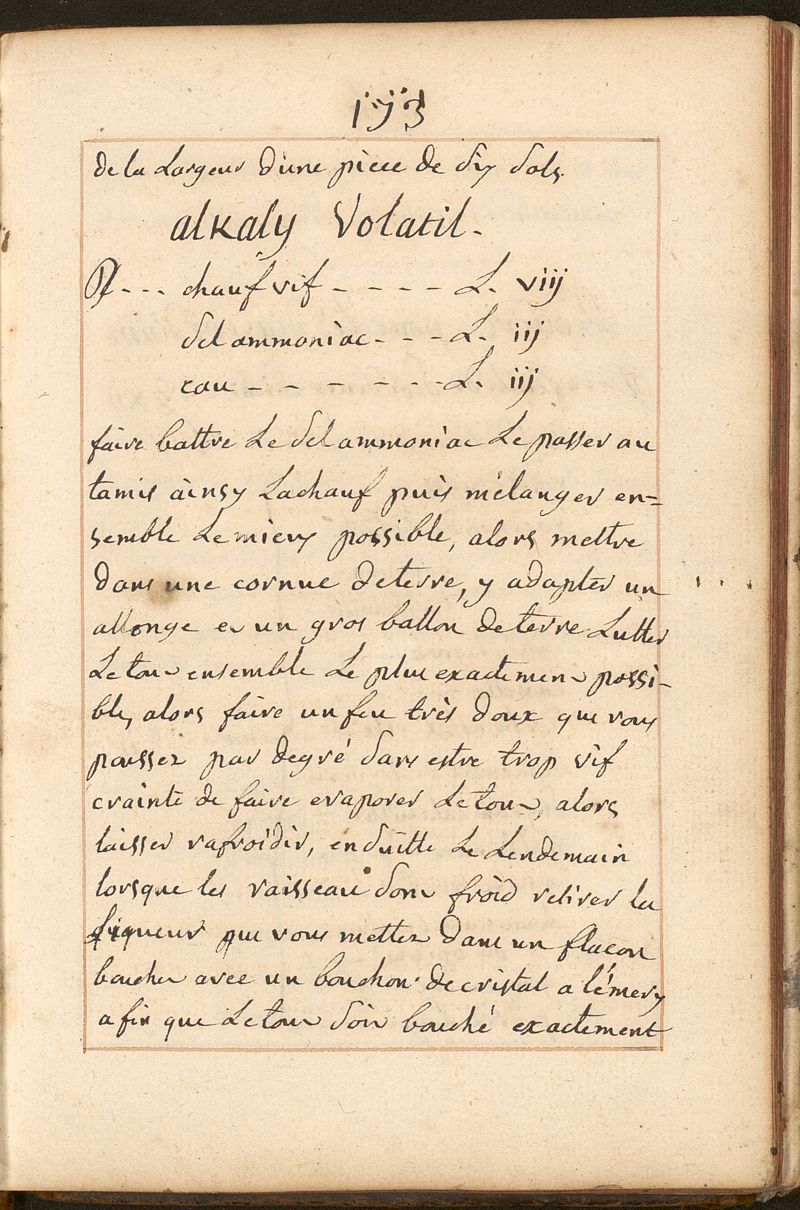 193
de la Largeur d'une pièce de Six Sols.
alkaly Volatil.
℞ - - - chauf vif - - - - L. viij
Sel ammoniac - - - L. iij
eau - - - - - - L. iij
faire battre Le Sel ammoniac Le passer au
tamis àinsy Lachauf puis mélanger en=
semble Le mieux possible, alors mettre
dans une cornue de terre, y adapter un
allonge et un gros ballon de terre Lutter
Le tout ensemble Le plus exactement possi-
ble, alors faire un feu très doux que vous
poussez par degré Sans estre trop vif
crainte de faire evaporer Le tout, alors
laisser rafroidir, en Suitte Le Lendemain
lorsque les vaisseau Sont froid retirer la
Liqueur que vous mettez dans un flacon
boucher avec un bouchon de cristal a l'émery
a fin que Le tout Soit bouché exactement